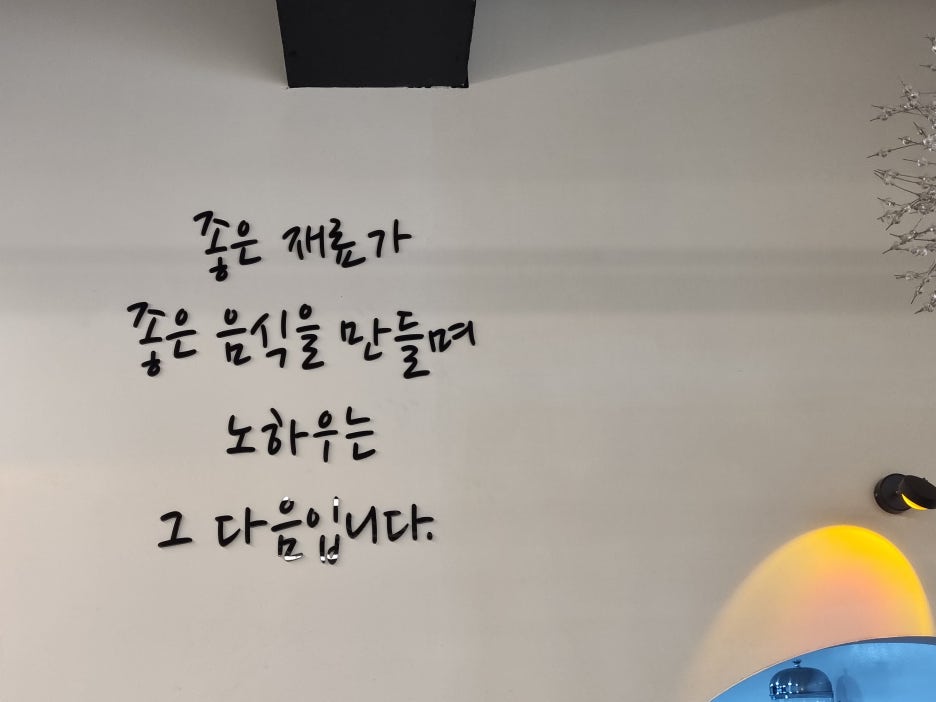 좋은 재료가
좋은 음식을 만들며
노하우는
그 다음입니다.